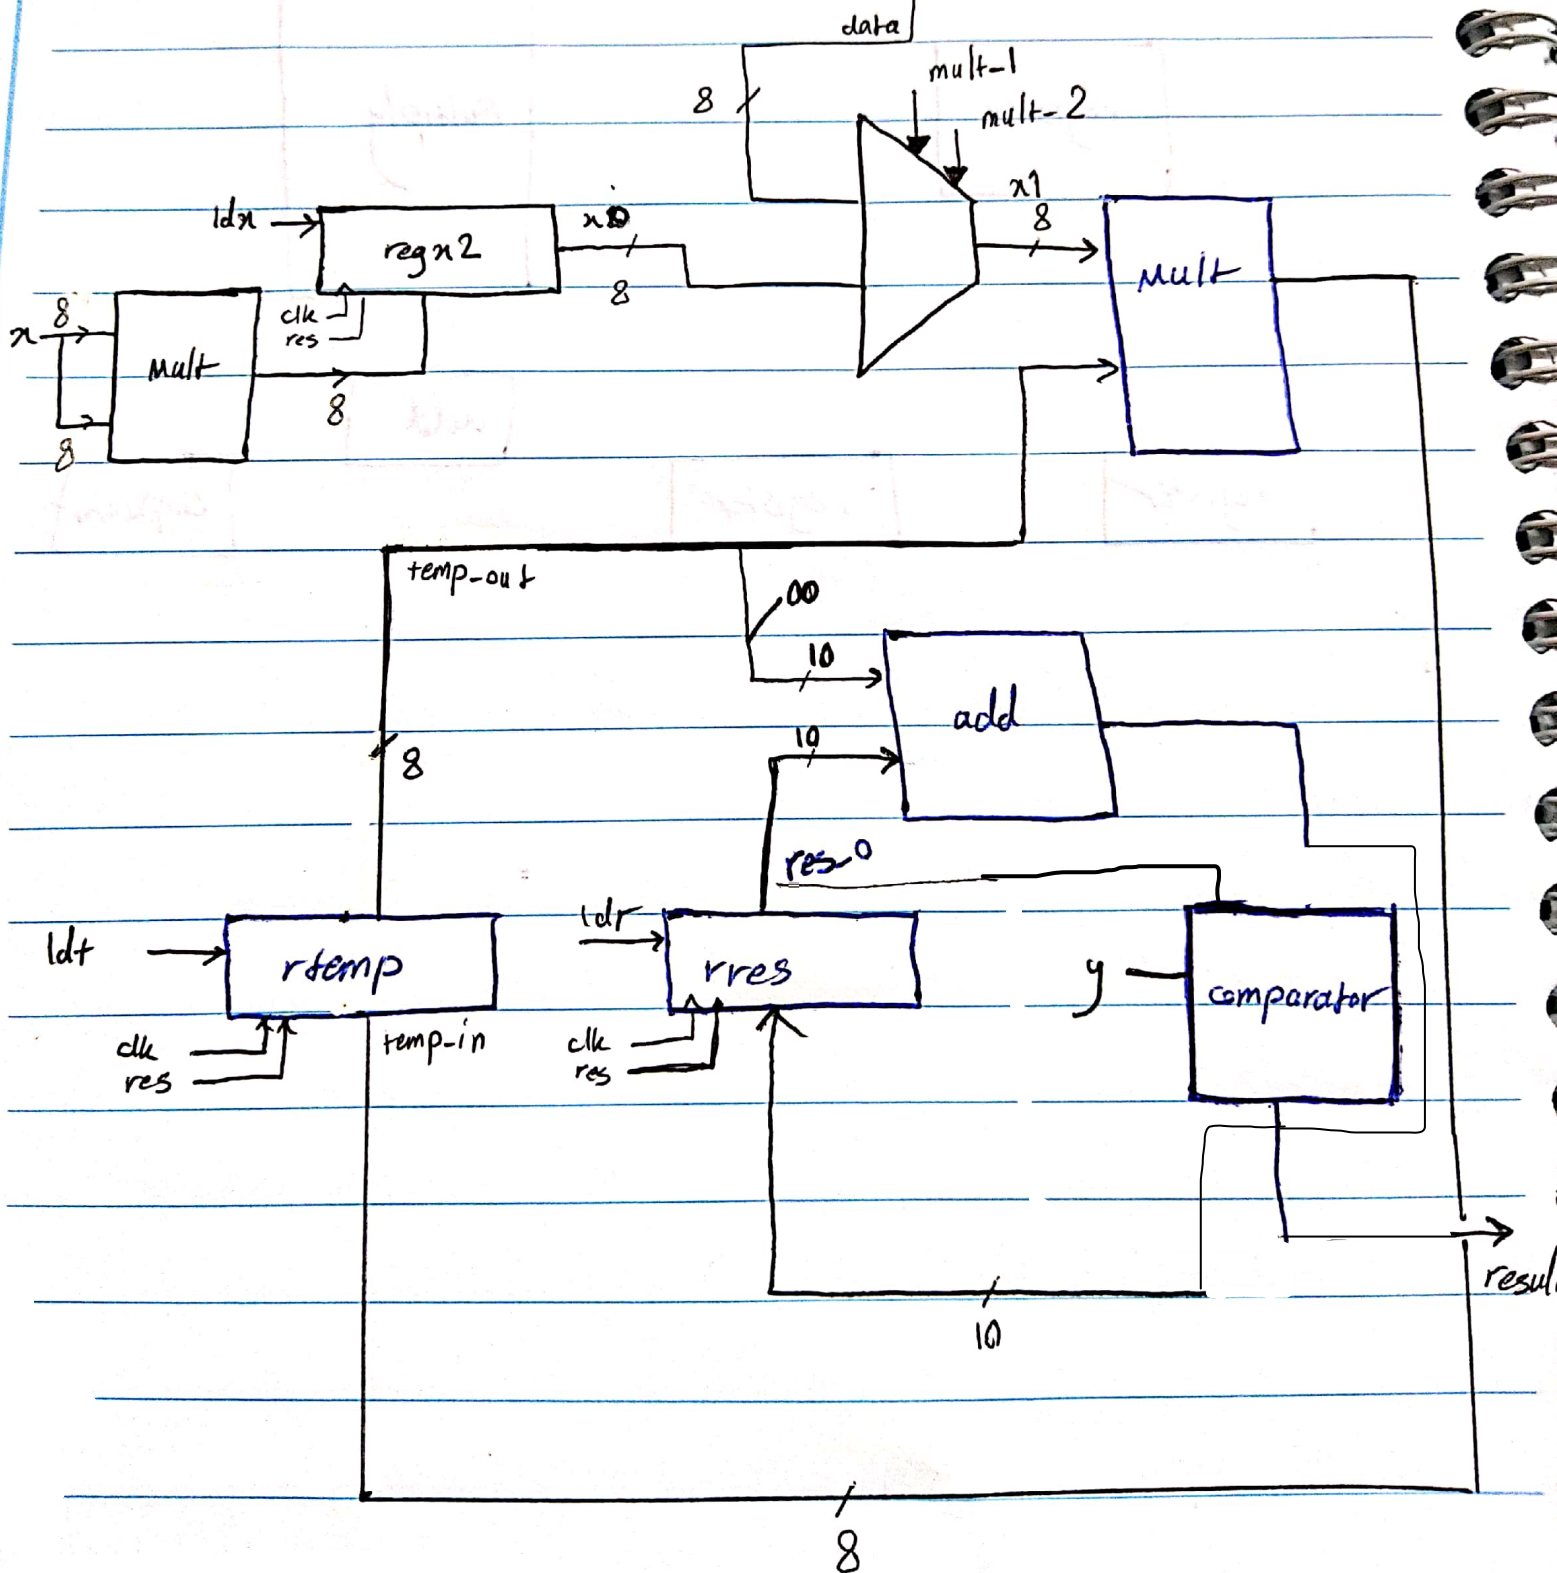 data
mult-1
8
mult-2
x1
8
ldx
regx2
8
Mult
clk
res
x
8
Mult
8
8
temp-out
00
10
add
10
8
res-0
ldr
ldt
rtemp
rres
y
comparator
clk
res
temp-in
clk
res
10
8